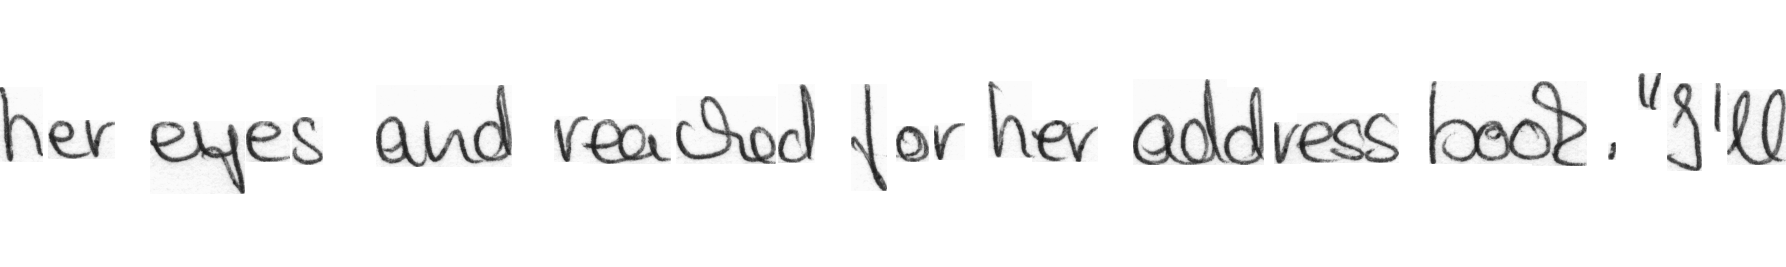 her eyes and reached for her address book. "I'll